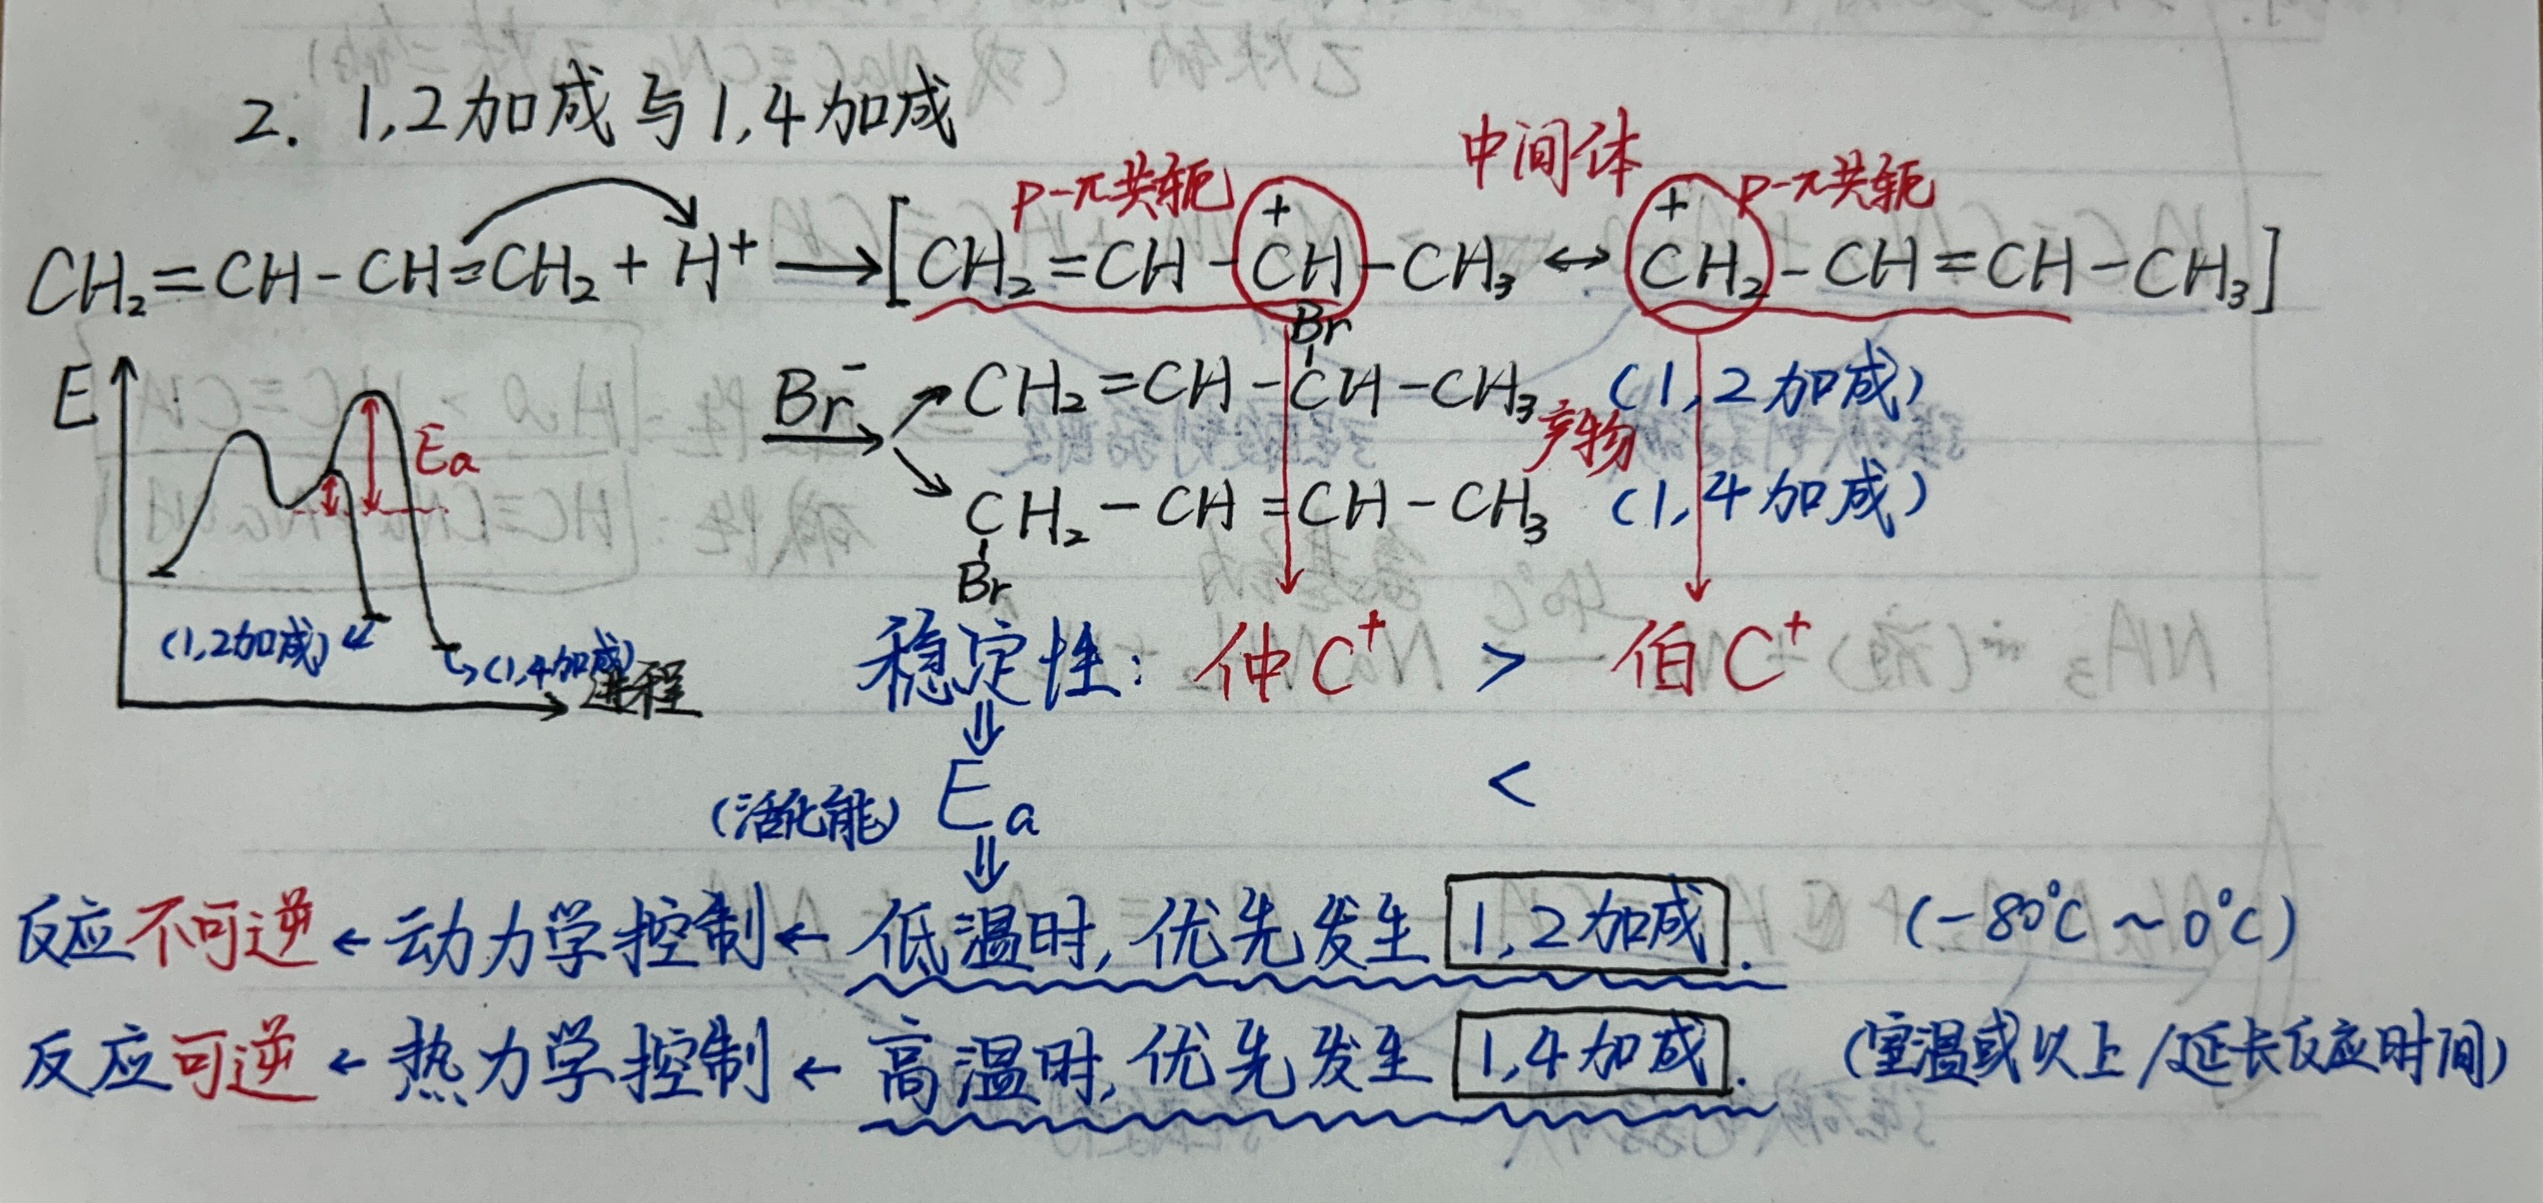 2. 1,2加成与1,4加成
中间体
p-π共轭 p-π共轭
CH₂=CH-CH=CH₂ + H⁺ → [CH₂=CH-C⁺H-CH₃ ↔ C⁺H₂-CH=CH-CH₃]
E
Ea
(1,2加成)
(1,4加成)
进程
Br
Br⁻ CH₂=CH-CH-CH₃ (1,2加成)
产物
CH₂-CH=CH-CH₃ (1,4加成)
Br
稳定性: 仲C⁺ > 伯C⁺
⇓
(活化能) Ea <
⇓
反应不可逆 ← 动力学控制 ← 低温时, 优先发生 1,2加成. (-80°C ~ 0°C)
反应可逆 ← 热力学控制 ← 高温时, 优先发生 1,4加成. (室温或以上/延长反应时间)